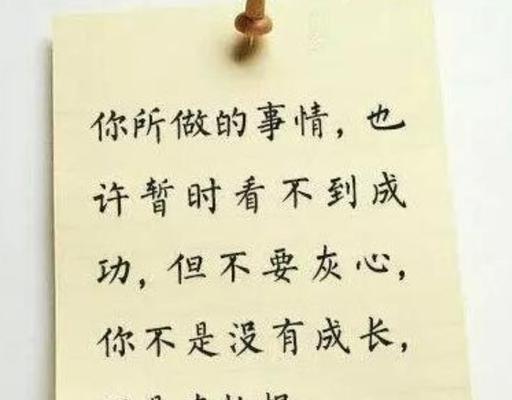 你所做的事情，也
许暂时看不到成
功，但不要灰心，
你不是没有成长，